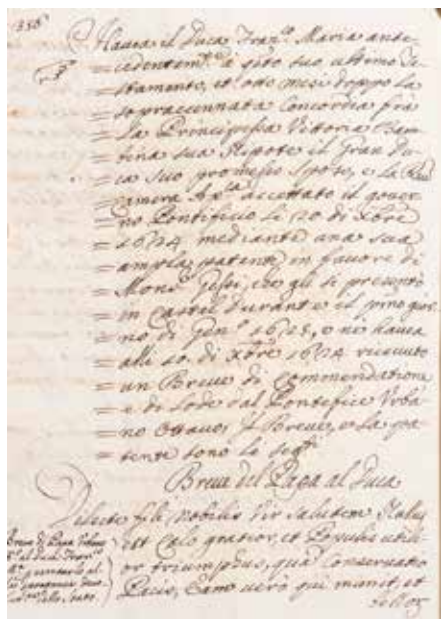 356
Havea il Duca Fran.co Maria ante
= cedentem.te a q.to suo ultimo Te
= stamento, et otto mesi doppo la
= sopraccennata Concordia fra
= la Principessa Vittoria Bam
= bina sua Nipote il Gran Du
= ca suo promesso sposo, e la Rev.
= Camera Ap.ca accettato il gover
= no Pontificio li 20 di Xbre
= 1624 mediante una sua
= ampla patente in favore di
= Mons.r Gessi, che gli si presentò
= in Castel Durante il p.mo gior
= no di Gen.o 1625, e ne havea
= alli 10. di Xbre 1624 ricevuto
= un Breve di Commendatione
= e di Lode dal Pontefice Urba
= no Ottavo; Il Breve, e la pa
= tente sono li seg.ti
Breve del Papa al Duca
Dilecte fili Nobilis Vir Salutem Nullus
est Cælo gratior, et Populis utili
or triumphus, quã Conservatio
Pacis, Eam verò qui munit, et
bellor
Breve di Papa Urbano
8.o al Duca Fran.co
M.a
dello Stato.